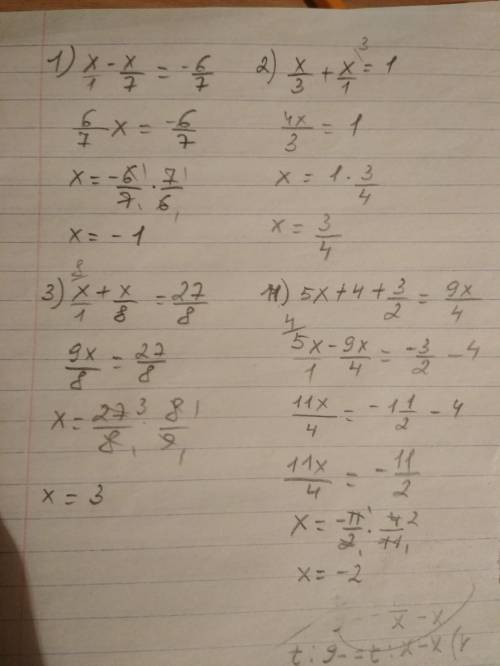 1) x/1 - x/7 = -6/7
6/7 x = -6/7
x = -6/7 · 7/6
x = -1
2) x/3 + x/1 = 1
4x/3 = 1
x = 1 · 3/4
x = 3/4
3) x/1 + x/8 = 27/8
9x/8 = 27/8
x = 27/8 · 8/9
x = 3
4) 5x + 4 + 3/2 = 9x/4
5x/1 - 9x/4 = -3/2 - 4
11x/4 = -1 1/2 - 4
11x/4 = -11/2
x = -11/2 · 4/11
x = -2